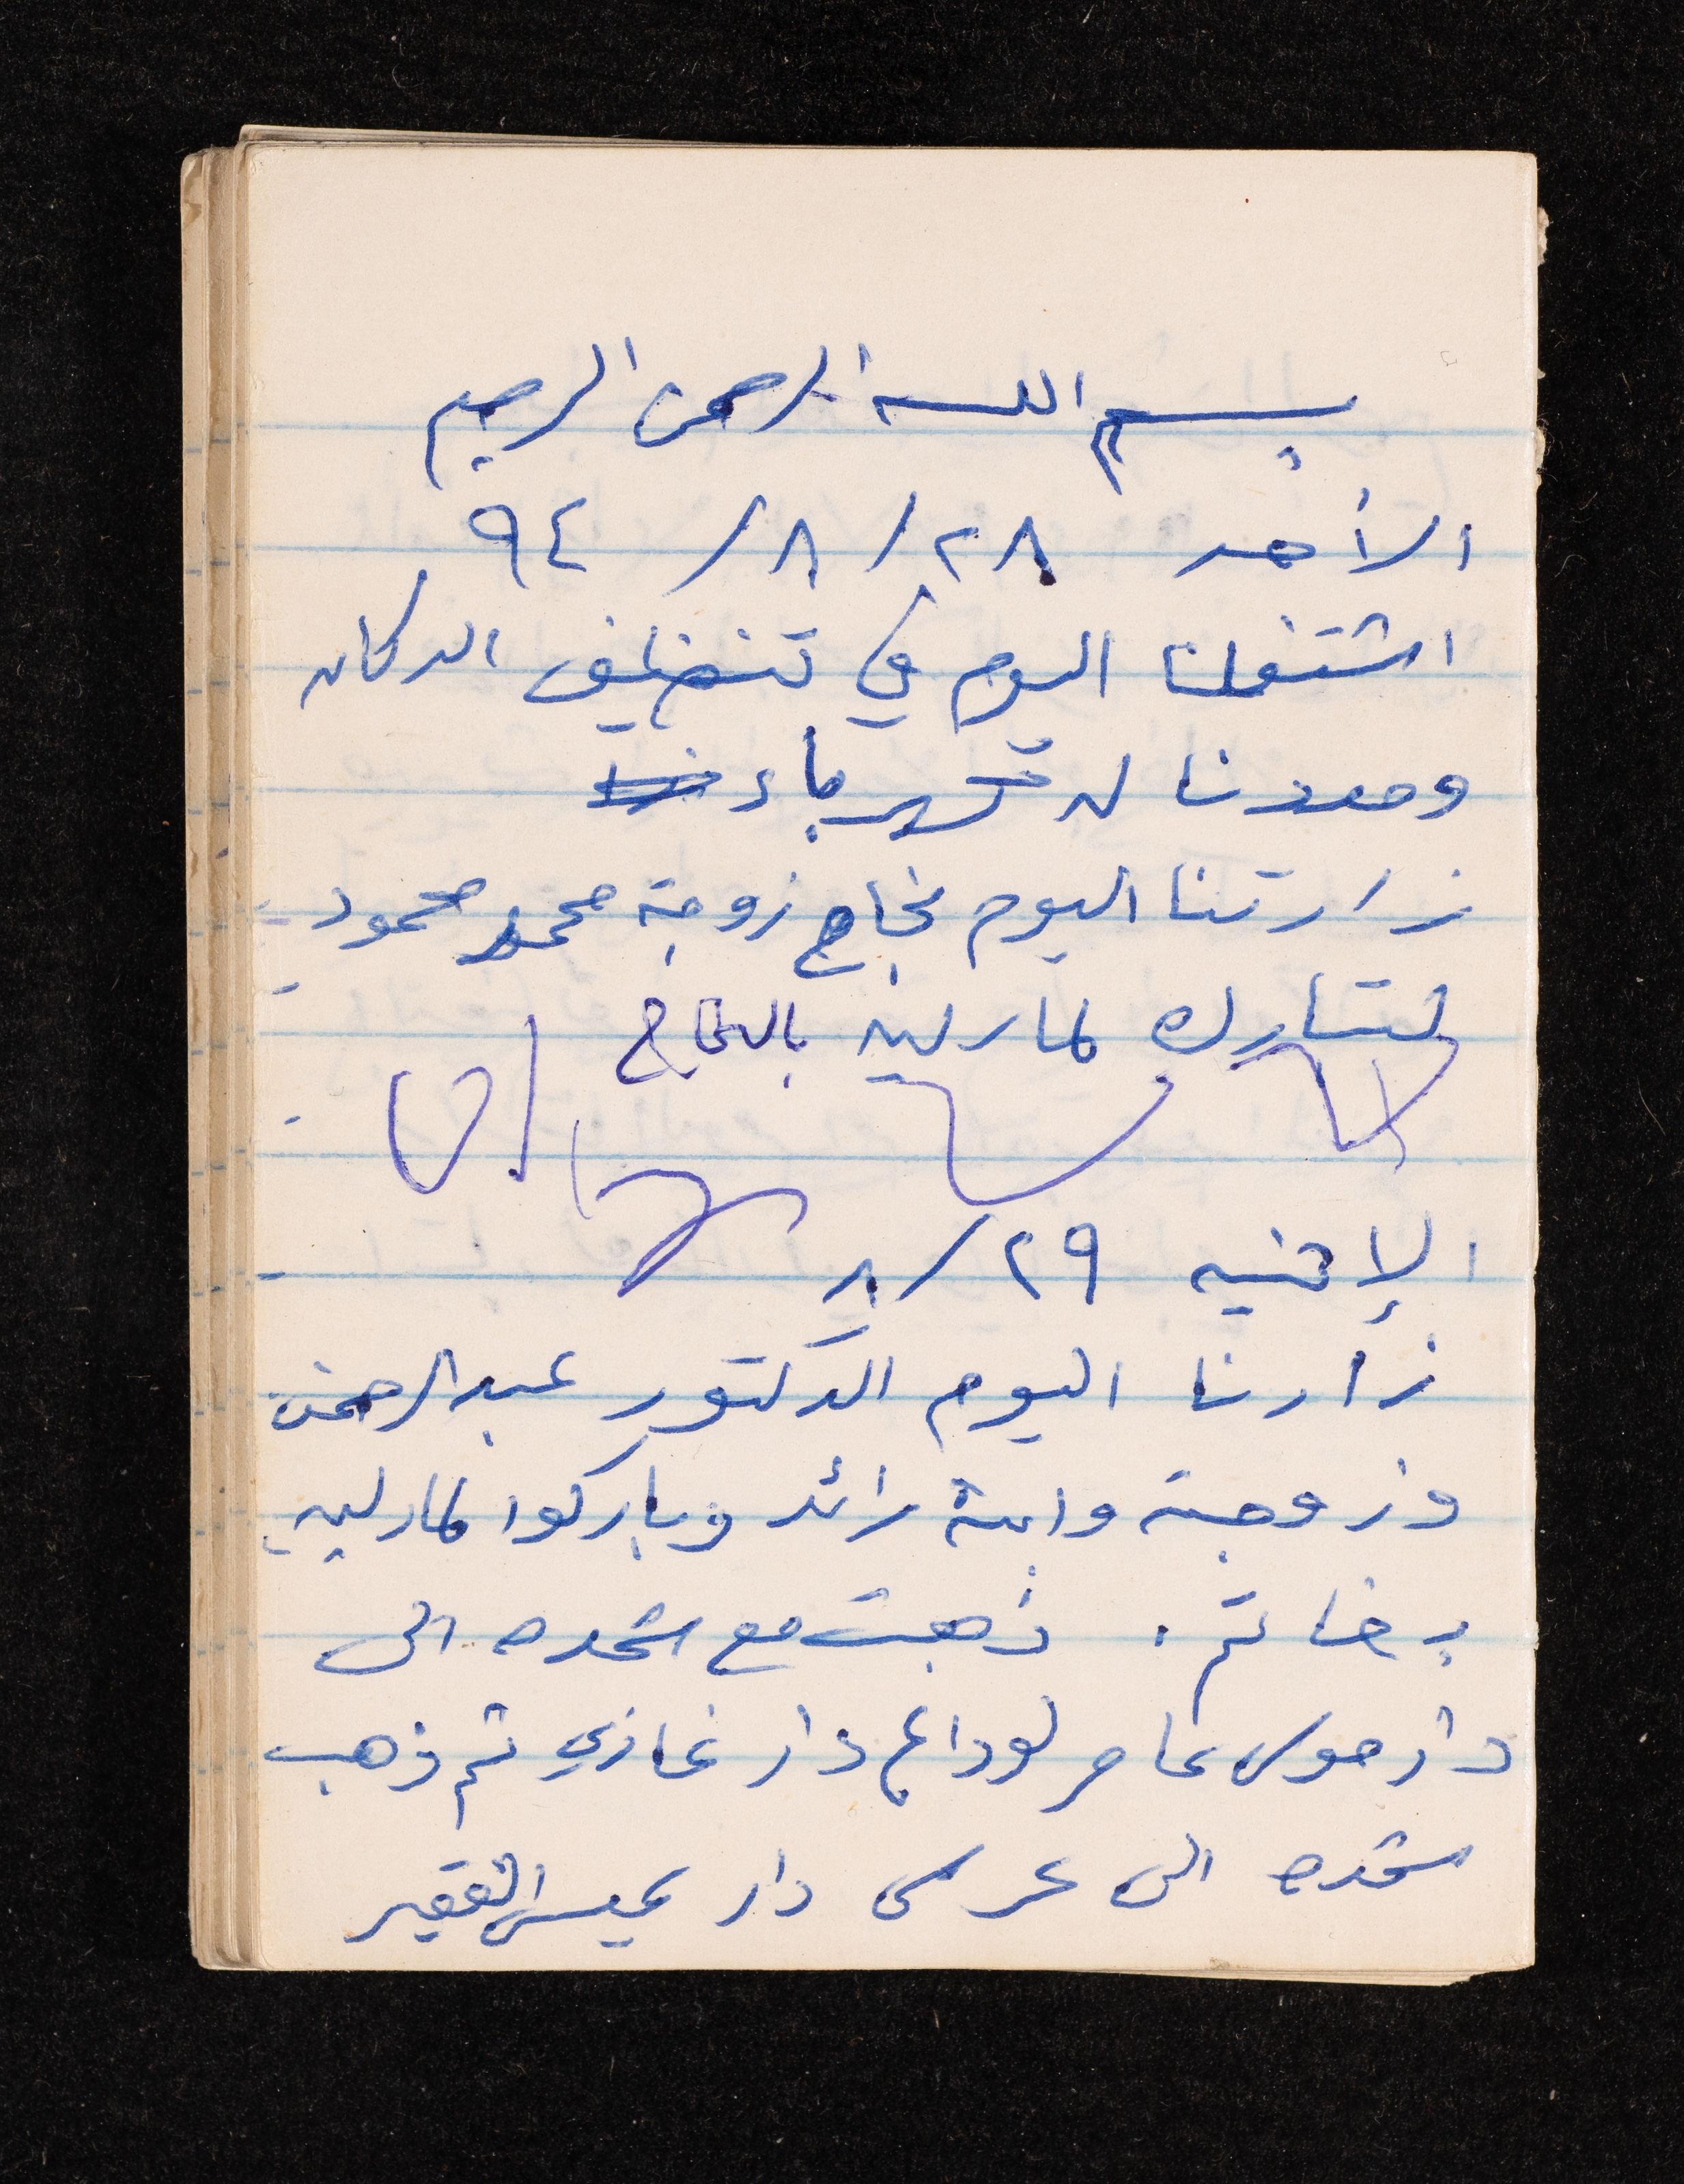 بسم الله الرحمن الرحيم
الأحد ٢٨/ ٨/ ٩٤
اشتغلنا اليوم في تنظيف الدكان
ومددنا له كهرباء
زارتنا اليوم نجاح زوجة محمد محمود
لتبارك لمارلين بالنجاح
الإثنين ٢٩/ ٨
زارنا اليوم الدكتور عبد الرحمن
وزوجته وابنة رائد وباركوا لمارلين
بخاتم. ذهبت مع شحده الى
دار موسى عامر لوداع دار غازي ثم ذهب
شحده الى عرس دار عيسى الفقير